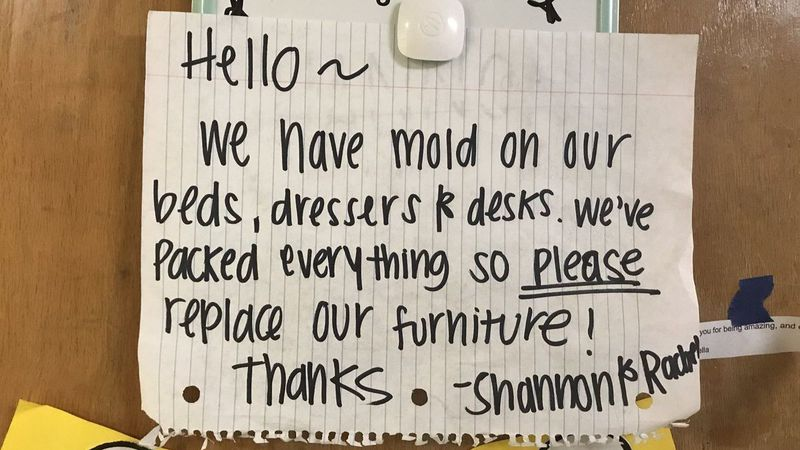 Hello ~
We have mold on our
beds, dressers & desks. we've
packed everything so please
replace our furniture!
Thanks -Shannon & Rachel
you for being amazing, and
ella